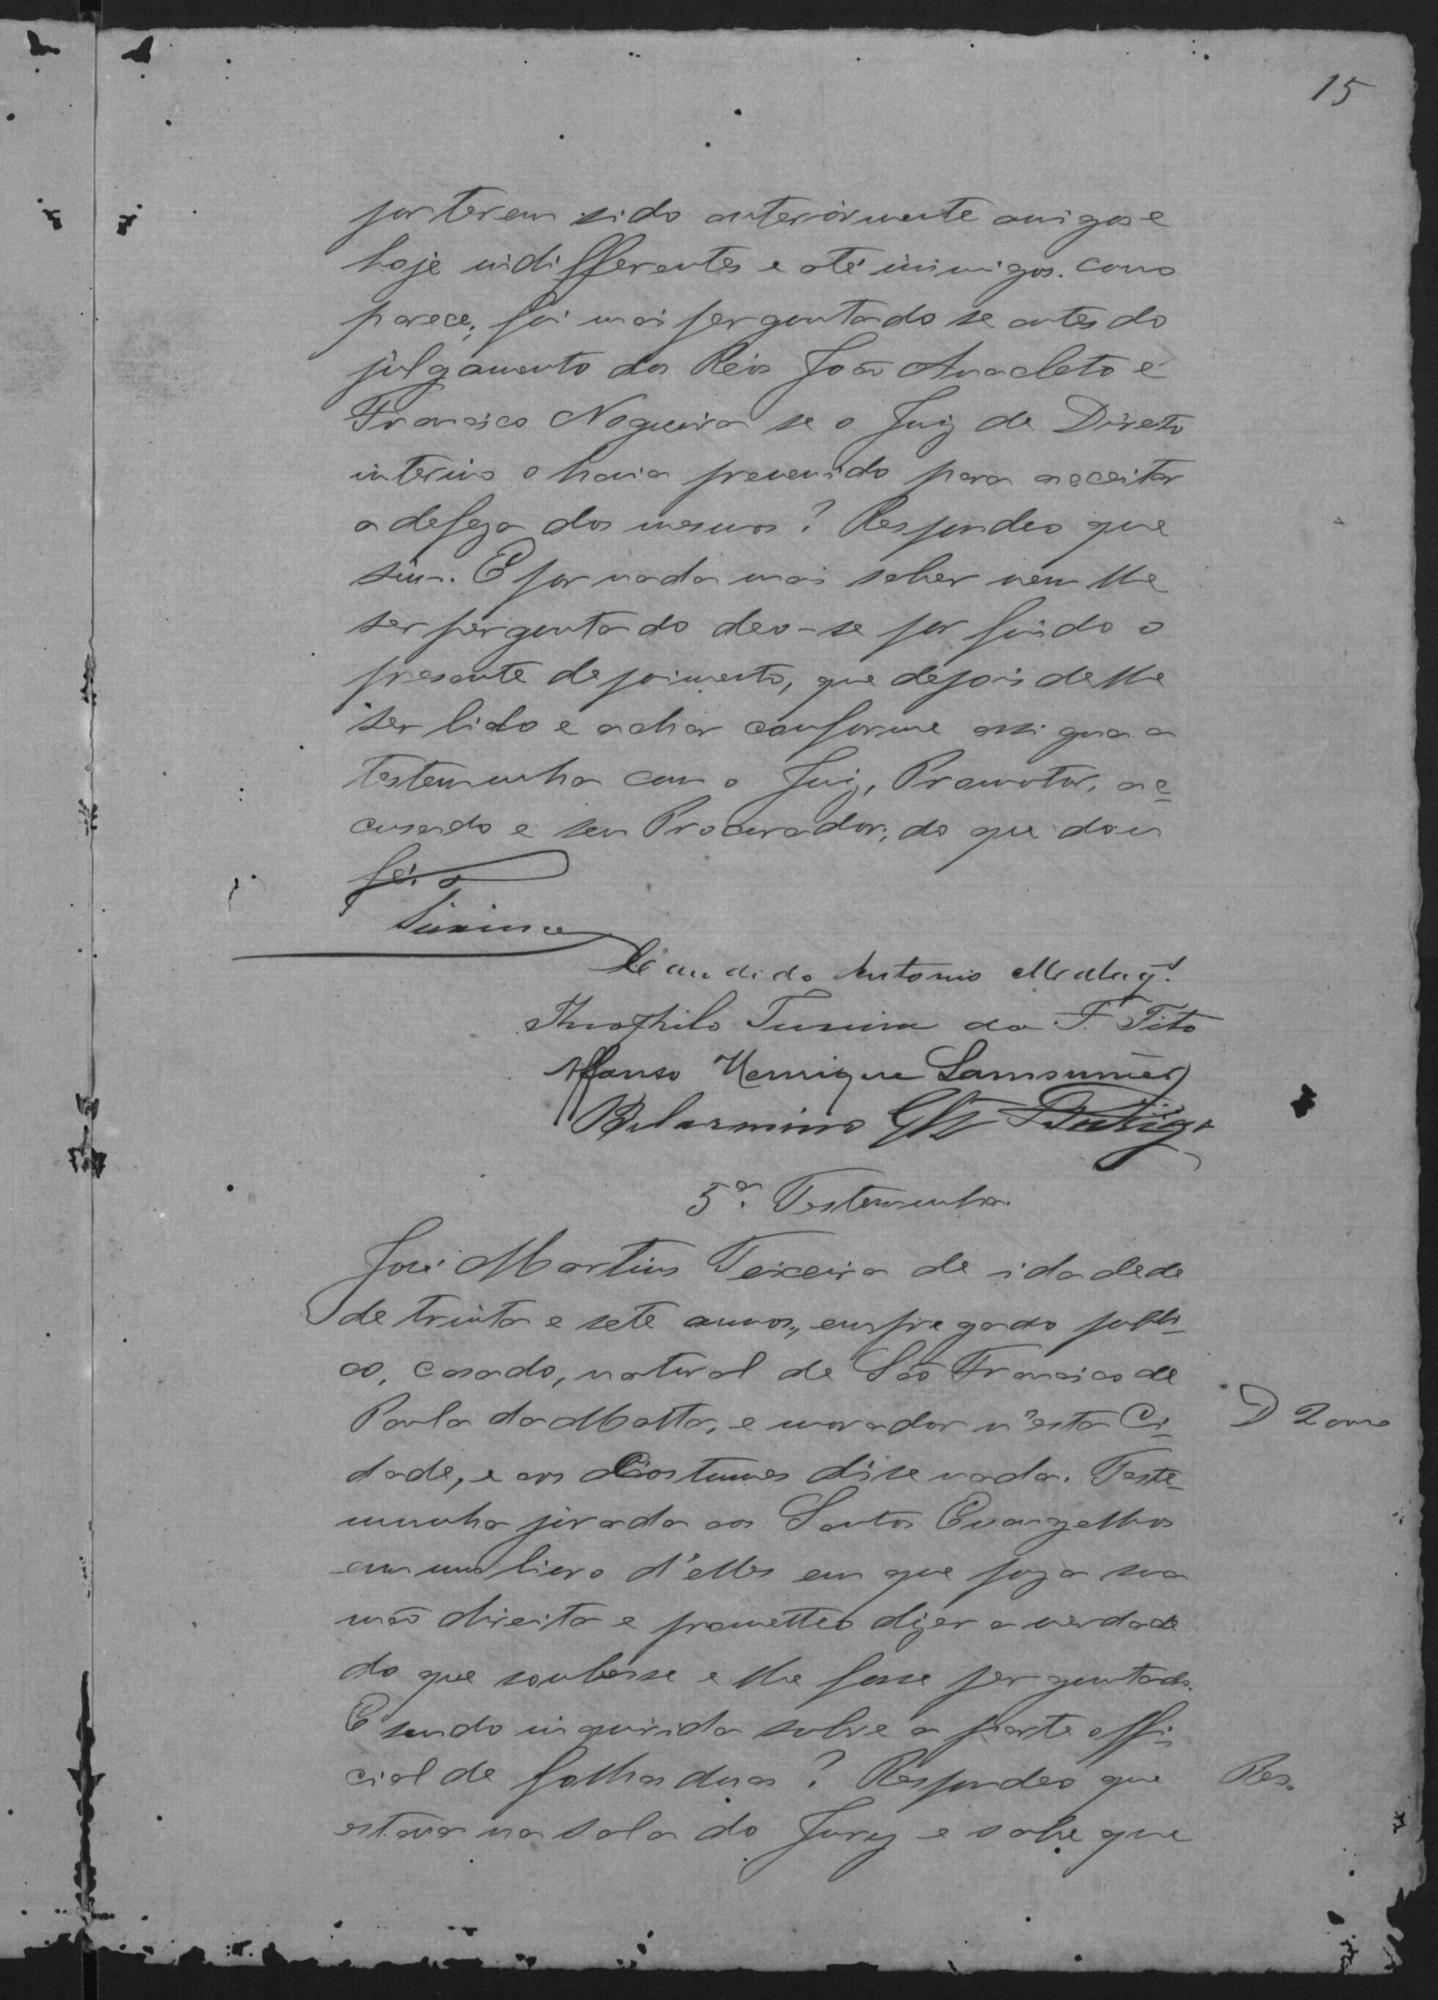 15
por terem sido anteriormente amigos e
hoje indifferentes e até inimigos. como
parece; foi mais perguntado se antes do
julgamento dos Reos João Anacleto e
Francisco Nogueira se o Juiz de Direito
interino o havia prevenido para acceitar
a defeza dos mesmos? Respondeo que
sim. E por nada mais saber nem lhe
ser perguntado deo-se por findo o
presente depoimento, que depois de lhe
ser lido e achar conforme assigna a
testemunha com o Juiz, Promotor, ac-
cusado e seu Procurador, do que dou
fé.
Candido Antonio
Theophilo da F. Tito
Affonso Henrique
Belarmino
5ª. Testemunha.
José Martins Teixeira de idade de
de trinta e sete annos, empregado publi-
co, casado, natural de São Francisco de
Paula da Matta, e morador n'esta Ci-
dade, e aos Costumes disse nada. Teste-
munha jurada aos Santos Evangelhos
em um livro d'elles em que poz a sua
mão direita e prometteo dizer a verdade
do que soubesse e lhe fosse perguntado.
E sendo inquirida sobre a parte offi-
cial de folhas duas? Respondeo que
Res.
estava na sala do Jury e sabe que